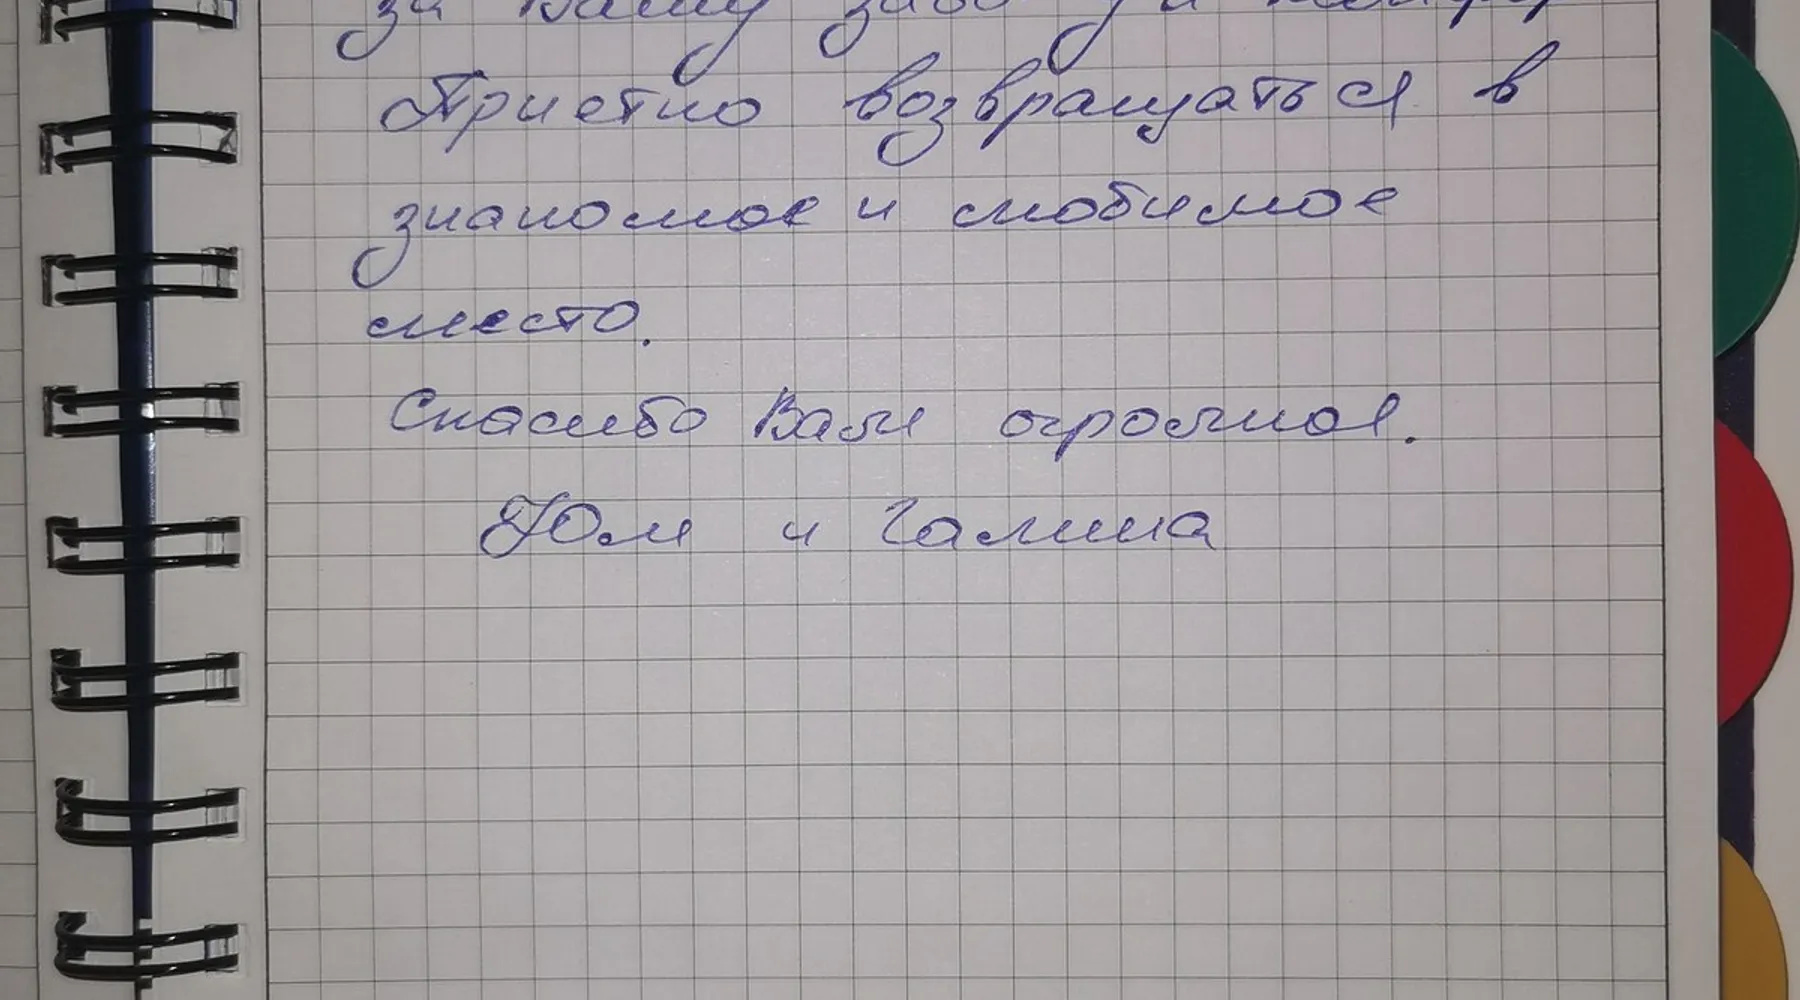 за Вашу заботу и комфорт
Приятно возвращаться в
знакомое и любимое
место.
Спасибо Вам огромное.
Юля и Галина